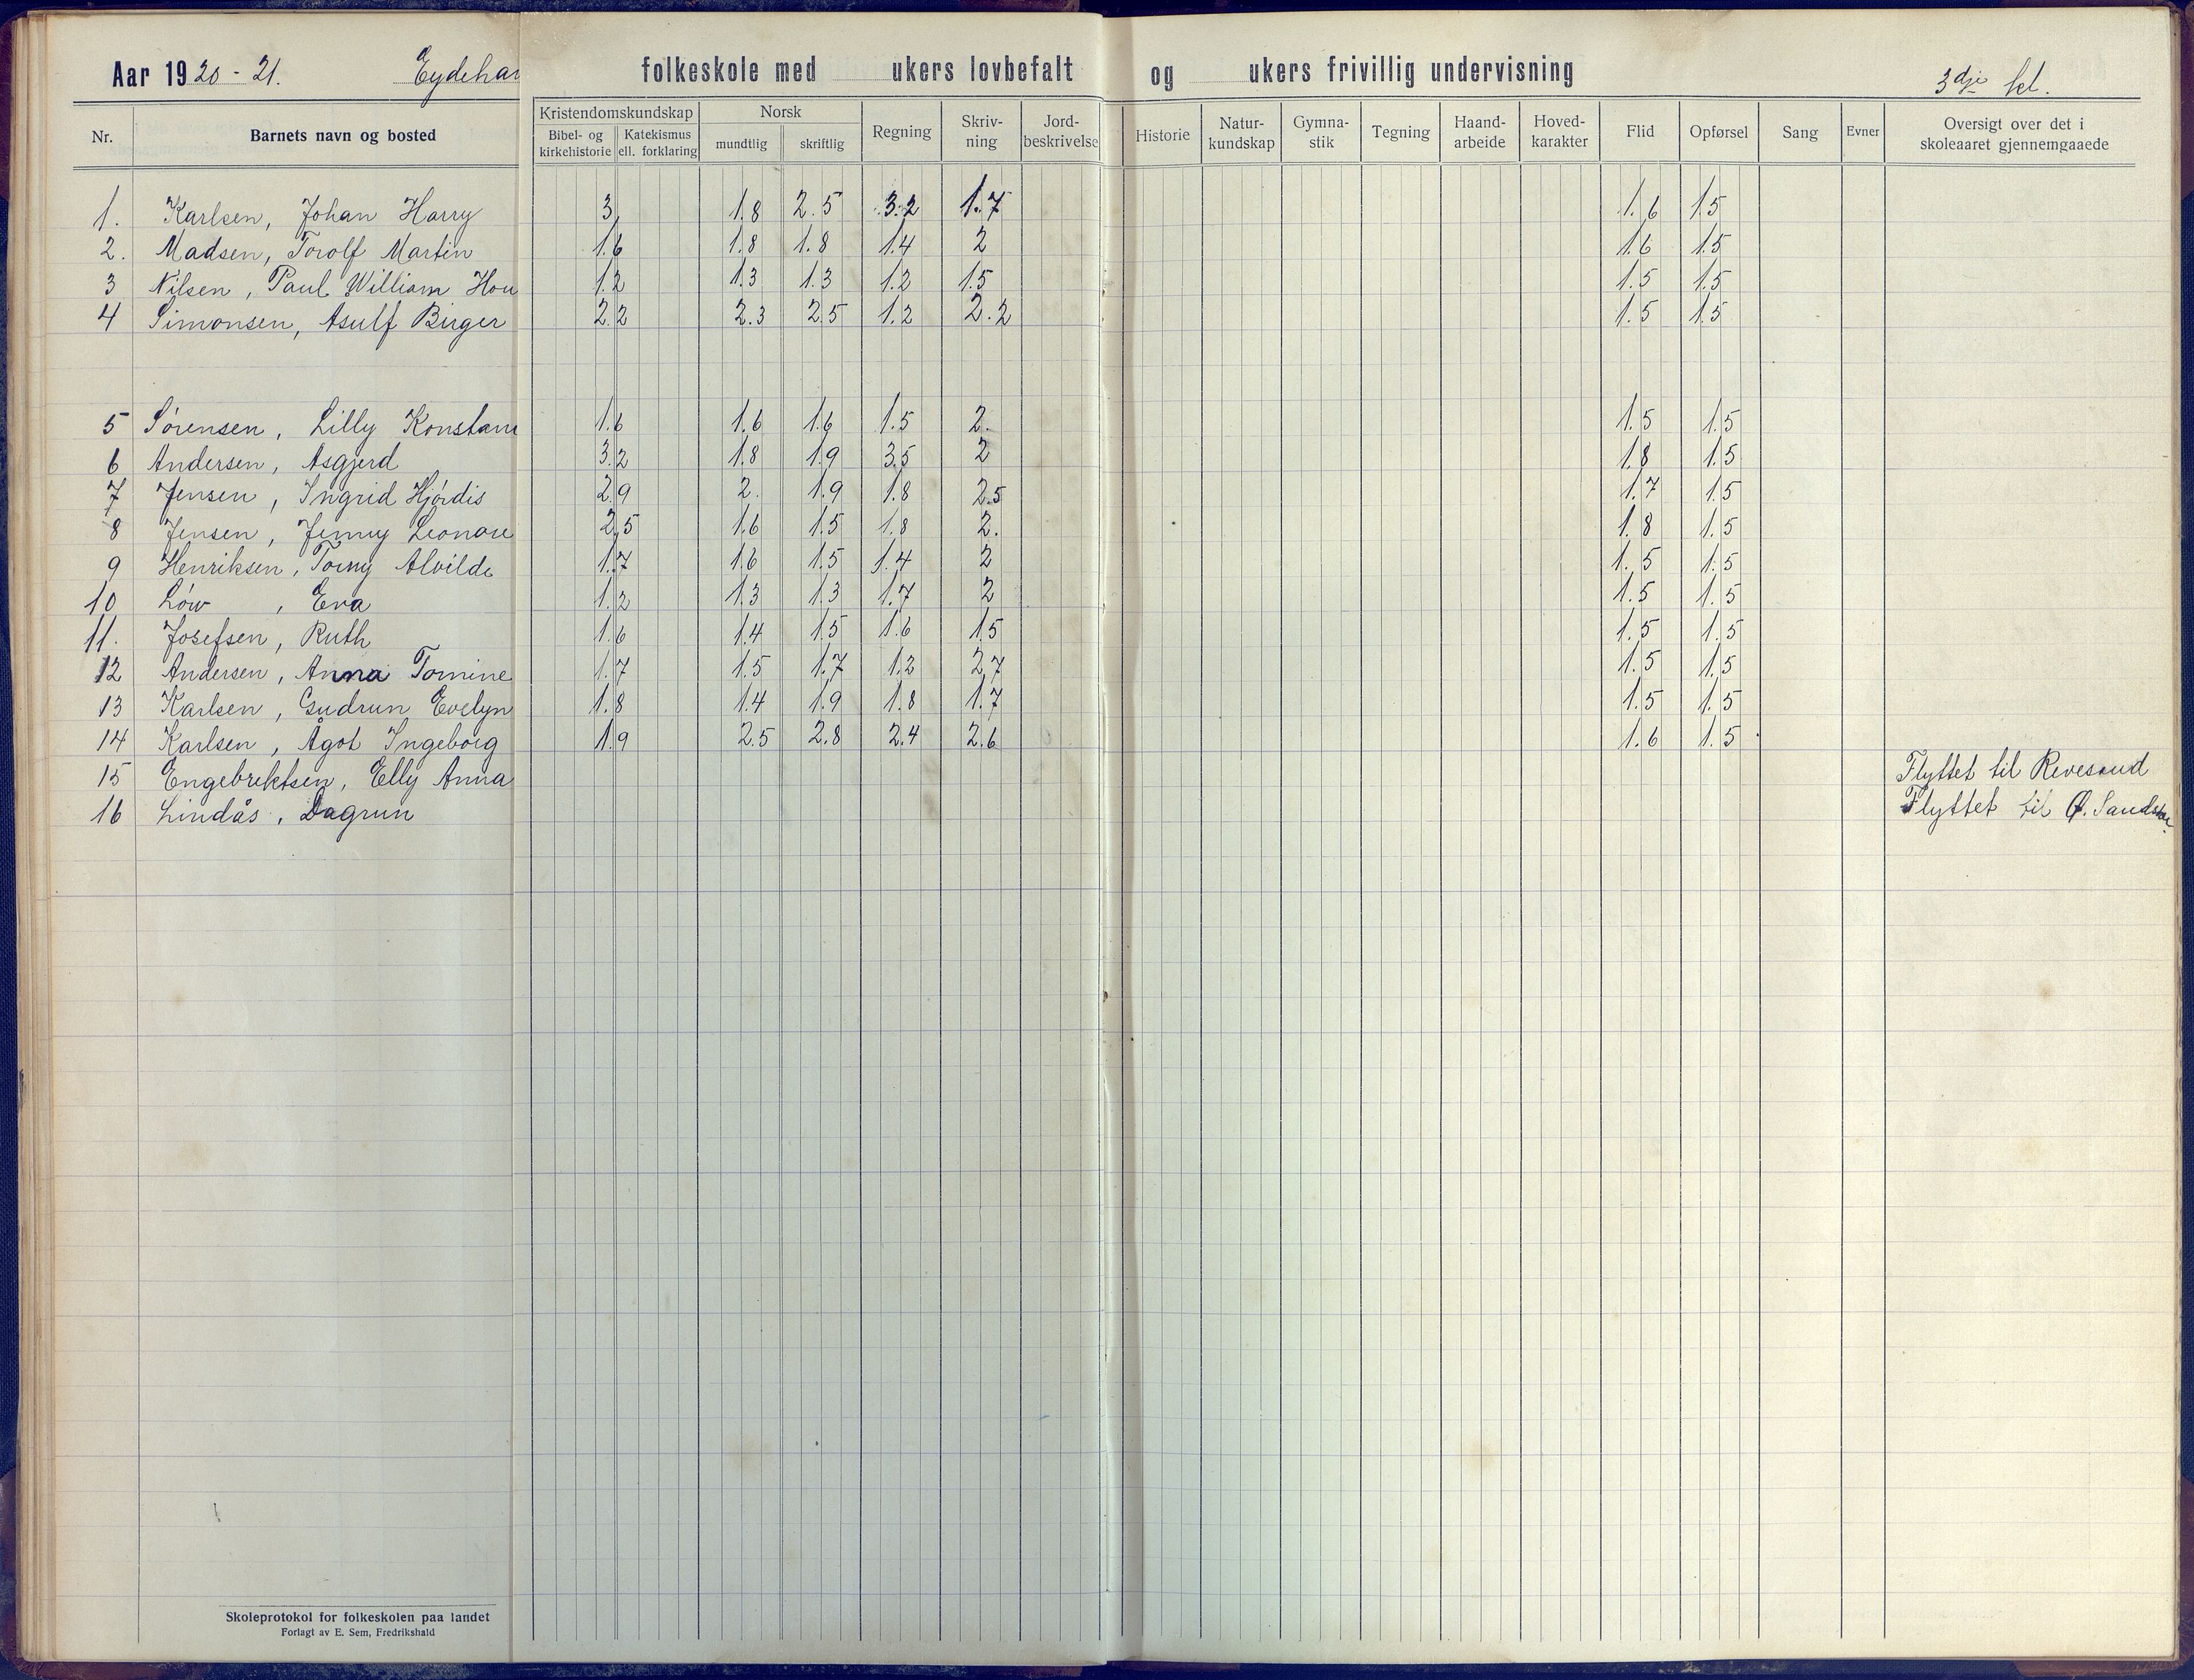 Aar 1920-21. Eydehav folkeskole med ukers lovbefalt og ukers frivillig undervisning 3dje kl.
Nr. Barnets navn og bosted Kristendomskundskap Bibel- og kirkehistorie Katekismus ell. forklaring Norsk mundtlig skriftlig Regning Skriv-ning Jord-beskrivelse Historie Natur-kundskap Gymna-stik Tegning Haand-arbeide Hoved-karakter Flid Opførsel Sang Evner Oversigt over det i skoleaaret gjennemgaaede
1. Karlsen, Johan Harry 3 1.8 2.5 3.2 1.7 1.6 1.5
2. Madsen, Torolf Martin 1.6 1.8 1.8 1.4 2 1.6 1.5
3 Nilsen, Paul William Hou 1.2 1.3 1.3 1.2 1.5 1.5 1.5
4 Simonsen, Asulf Birger 2.2 2.3 2.5 1.2 2.2 1.5 1.5
5 Sørensen, Lilly Konstan 1.6 1.6 1.6 1.5 2. 1.5 1.5
6 Andersen, Asgjerd 3.2 1.8 1.9 3.5 2 1.8 1.5
7 Jensen, Ingrid Hjørdis 2.9 2. 1.9 1.8 2.5 1.7 1.5
8 Jensen, Jenny Leonore 2.5 1.6 1.5 1.8 2. 1.8 1.5
9 Henriksen, Torny Alvilde 1.7 1.6 1.5 1.4 2 1.5 1.5
10 Löw, Eva 1.2 1.3 1.3 1.7 2 1.5 1.5
11. Josefsen, Ruth 1.6 1.4 1.5 1.6 1.5 1.5 1.5
12 Andersen, Anna Tomine 1.7 1.5 1.7 1.2 2.7 1.5 1.5
13 Karlsen, Gudrun Evelyn 1.8 1.4 1.9 1.8 1.7 1.5 1.5
14 Karlsen, Ågot Ingeborg 1.9 2.5 2.8 2.4 2.6 1.6 1.5
15 Engebrektsen, Elly Anna Flyttet til Revesand
16 Lindås, Dagrun Flyttet til Ø.
Skoleprotokol for folkeskolen paa landet
Forlagt av E. Sem, Fredrikshald